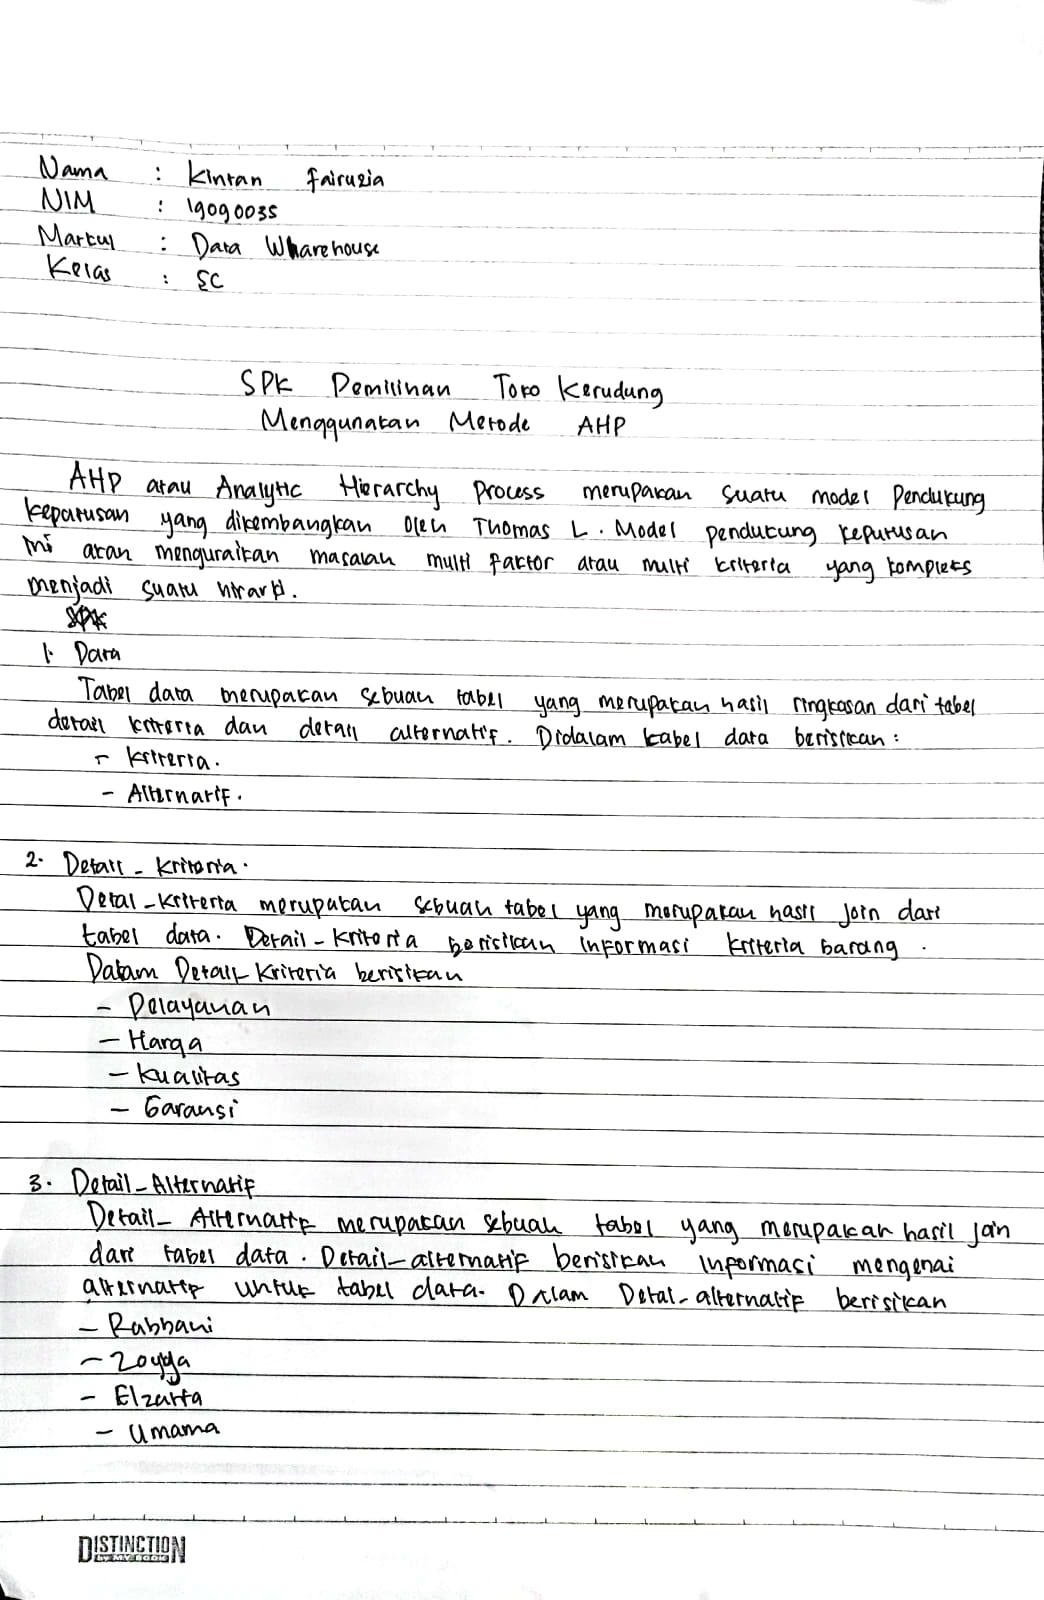 Nama : Kintan Fairuzia
NIM : 19090035
Matkul : Data Wharehouse
Kelas : 5C
SPK Pemilihan Toko Kerudung
Menggunakan Metode AHP
AHP atau Analytic Hierarchy Process merupakan suatu model pendukung
keputusan yang dikembangkan oleh Thomas L. Model pendukung keputusan
ini akan menguraikan masalah multi factor atau multi kriteria yang kompleks
menjadi suatu hirarki.
1. Data
Tabel data merupakan sebuah tabel yang merupakan hasil ringkasan dari tabel
detail kriteria dan detail alternatif. Didalam tabel data berisikan :
- Kriteria.
- Alternatif.
2. Detail - Kriteria.
Detal - Kriteria merupakan sebuah tabel yang merupakan hasil join dari
tabel data. Detail - Kriteria berisikan informasi kriteria barang.
Dalam Detail - Kriteria berisikan
- Pelayanan
- Harga
- Kualitas
- Garansi
3. Detail - Alternatif
Detail - Alternatif merupakan sebuah tabel yang merupakan hasil join
dari tabel data. Detail - alternatif berisikan informasi mengenai
alternatif untuk tabel data. Dalam Detal - alternatif berisikan
- Rabbani
- Zoyya
- Elzatta
- Umama
DISTINCTION
BY MY BOOK